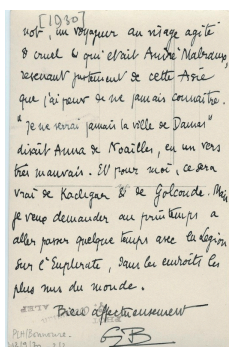 [1930]
not, un voyageur au visage agité
& cruel & qui était André Malraux,
revenant justement de cette Asie
que j'ai peur de ne jamais connaître.
"Je ne verrai jamais la ville de Damas"
disait Anna de Noailles, en un vers
très mauvais. Et pour moi, ce sera
vrai de Kachgar & de Golconde. Mais
je veux demander au printemps à
aller passer quelque temps avec la Légion
sur l'Euphrate, dans les endroits les
plus nus du monde.
Bien affectueusement
GB